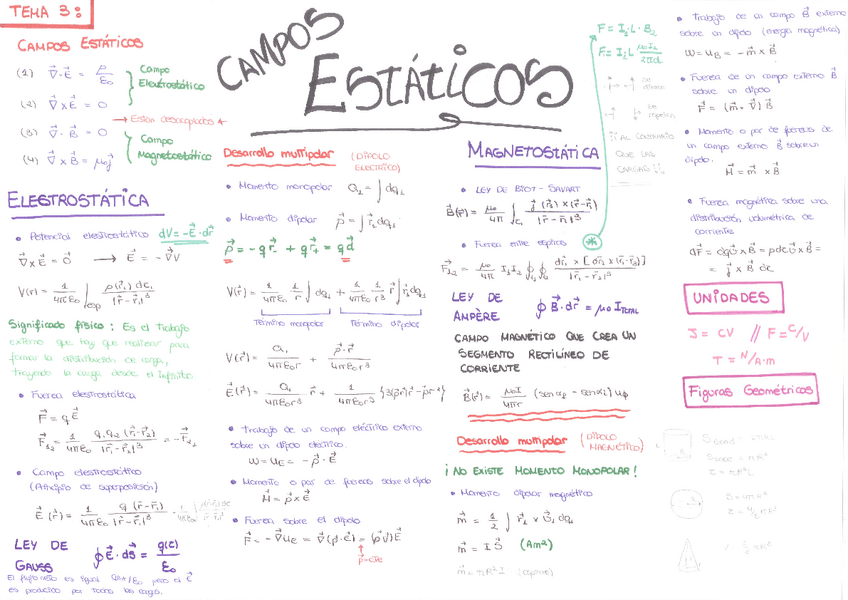 TEMA 3:
CAMPOS ESTÁTICOS
CAMPOS ESTÁTICOS
(1) ∇·E = ρ/ε₀
(2) ∇×E = 0
Campo Electrostático
→ Están desacoplados ←
(3) ∇·B = 0
(4) ∇×B = μ₀j
Campo Magnetostático
ELECTROSTÁTICA
• Potencial electrostático dV = -E·dr
∇×E = 0 → E = -∇V
V(r) = 1/4πε₀ ∫
Significado físico: Es el trabajo
externo que hay que realizar para
formar la distribución de carga,
trayendo la carga desde el infinito.
• Fuerza electrostática
F = qE
F₁₂ = 1/4πε₀ q₁q₂(r₁-r₂)/|r₁-r₂|³ = -F₂₁
• Campo electrostático
(Principio de superposición)
E(r) = 1/4πε₀ q(r-r₁)/|r-r₁|³
LEY DE GAUSS ∮E·dS = q(τ)/ε₀
El flujo es igual pero el E
es producido por todas las cargas.
Desarrollo multipolar (DIPOLO ELÉCTRICO)
• Momento monopolar Q₁ = ∫dq₁
• Momento dipolar p = ∫r₁dq₁
p = -qr₋ + qr₊ = qd
V(r) = 1/4πε₀ 1/r ∫dq₁ + 1/4πε₀ 1/r³ r∫r₁dq₁
Término monopolar Término dipolar
V(r) = Q₁/4πε₀r + p·r/4πε₀r³
E(r) = Q₁/4πε₀r³ r + 1/4πε₀r⁵ {3(pr)r - pr²}
• Trabajo de un campo eléctrico externo
sobre un dipolo eléctrico.
W = U_E = -p·E
• Momento o par de fuerzas sobre el dipolo
M = p×E
• Fuerza sobre el dipolo
F = -∇U_E = ∇(p·E) = (p∇)E
p=cte
MAGNETOSTÁTICA
• LEY DE BIOT-SAVART
B(r) = μ₀/4π ∫ j(r₁)×(r-r₁)/|r-r₁|³
• Fuerza entre espiras ✱
F₁₂ = μ₀/4π I₁I₂ ∮∮ dr₂×[dr₁×(r₁-r₂)]/|r₁-r₂|³
LEY DE AMPÈRE ∮B·dr = μ₀I_TOTAL
CAMPO MAGNÉTICO QUE CREA UN
SEGMENTO RECTILÍNEO DE
CORRIENTE
B(r) = μ₀I/4πr (senα₂ - senα₁)uφ
Desarrollo multipolar (DIPOLO MAGNÉTICO)
¡NO EXISTE MOMENTO MONOPOLAR!
• Momento dipolar magnético
m = 1/2 ∫r₁×v₁dq₁
m = IS (Am²)
m = πR²I (espira)
F = I₂L·B₂
F = I₂L μ₀I₁/2πd
¡¡AL CONTRARIO
QUE LAS
CARGAS!!
• Trabajo de un campo B externo
sobre un dipolo (energía magnética)
W = U_B = -m×B
• Fuerza de un campo externo B
sobre un dipolo
F = (m·∇)B
• Momento o par de fuerzas de
un campo externo B sobre un
dipolo.
M = m×B
• Fuerza magnética sobre una
distribución volumétrica de
corriente
dF = dqv×B = ρdτv×B =
= j×B dτ
UNIDADES
J = CV // F = C/V
T = N/A·m
Figuras Geométricas